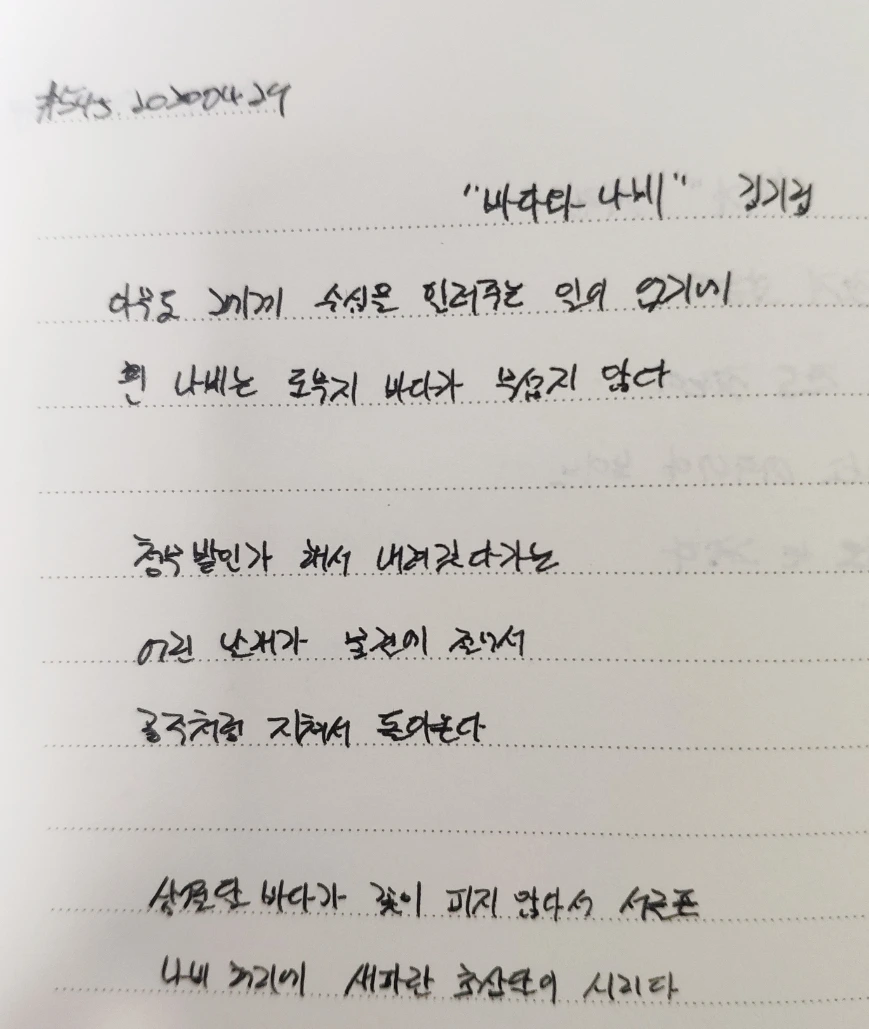 #545 20200429
"바다와 나비" 김기림
아무도 그에게 수심을 일러주는 일이 없기에
흰 나비는 도무지 바다가 무섭지 않다
청무 밭인가 해서 내려갔다가는
어린 날개가 물결에 절어서
공주처럼 지쳐서 돌아온다
삼월달 바다가 꽃이 피지 않아서 서글픈
나비 허리에 새파란 초승달이 시리다